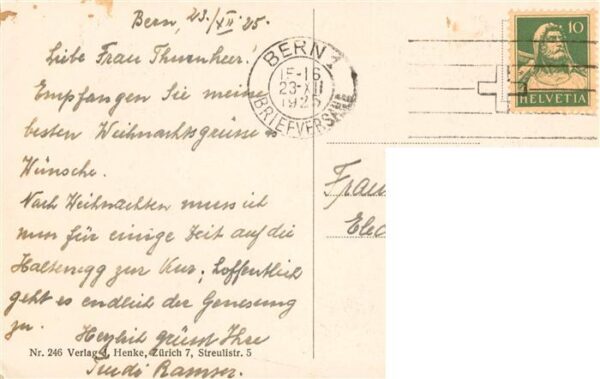 Bern, 23./XII 25.
Liebe Frau Thurnheer!
Empfangen Sie meine
besten Weihnachtsgrüsse &
Wünsche.
Nach Weihnachten muss ich
nun für einige Zeit auf die
Haltenegg zur Kur; hoffentlich
geht es endlich der Genesung
zu. Herzlich grüsst Ihre
Nr. 246 Verlag J. Henke, Zürich 7, Streulistr. 5
Trudi Ramser.
BERN 1
15-16
23·XII
1925
BRIEFVERSAND
10
HELVETIA
Frau
Elec